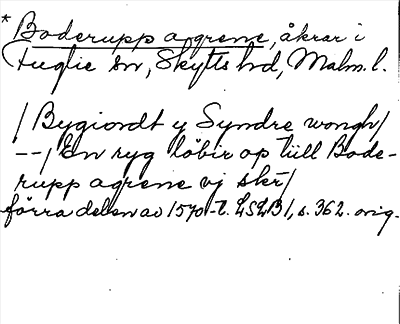 * Boderupp agrene, åkrar i
Fuglie sn, Skytts hd, Malm. l.
/ Bygiordt y Syndre wongh/
--/ En ryg löbir op tiill Bode-
rupp agrene vj skr/
förra delen av 1570-t. LSLB 1, s. 362. orig.